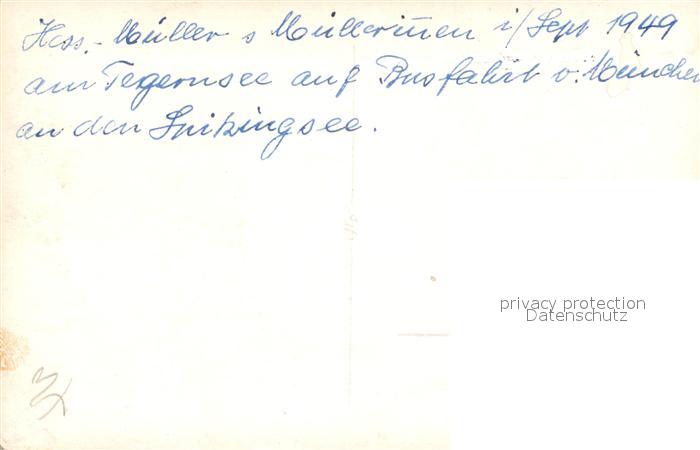 Hess.- Müller s Müllerinen i/ Sept 1949
am Tegernsee auf Busfahrt v. München
an den Spitzingsee.
privacy protection
Datenschutz